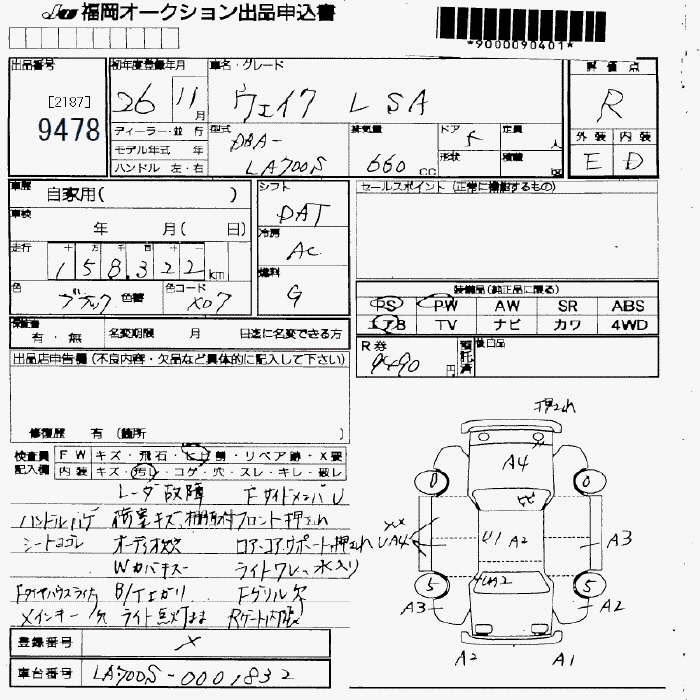 福岡オークション出品申込書
*9000090401*
出品番号
[2187]
9478
初年度登録年月
26 11月
車名・グレード
ウェイク L SA
評価点
R
外装 内装
E D
ディーラー・並行
モデル年式 年
ハンドル 左・右
型式
DBA-
LA700S
排気量
660 cc
ドア 5
形状
定員 人
積載 kg
車歴 自家用( )
車検 年 月( 日)
走行 十万千百十一
158,322 km
色 ブラック 色替 色コード X07
シフト
DAT
冷房
AC
燃料
G
セールスポイント (正常に機能するもの)
装備品(純正品に限る)
PS PW AW SR ABS
エアB TV ナビ カワ 4WD
R券 9490円 預託済
後日品
保証書 有・無 名変期限 月 日迄に名変できる方
出品店申告欄 (不良内容・欠品など具体的に記入して下さい)
修復歴 有 (箇所 )
検査員記入欄
FW キズ・飛石・ヒビ割・リペア跡・X要
内装 キズ・汚れ・コゲ・穴・スレ・キレ・破レ
レーダ故障 Fサイドメンバ U
ハンドルハゲ 荷室キズ、
フロント押され
シートコゲ オーディオ欠
コアサポート押され
Wカバキズ ライトワレ、水入り
Fタイヤハウスライナ B/Tエガリ Fグリル欠
メインキー欠
Rゲート内張
登録番号 ×
車台番号 LA700S-0001832
押され
A4
0 0
UA4 U1 A2 A3
5 5
A3 A2
A2 A1